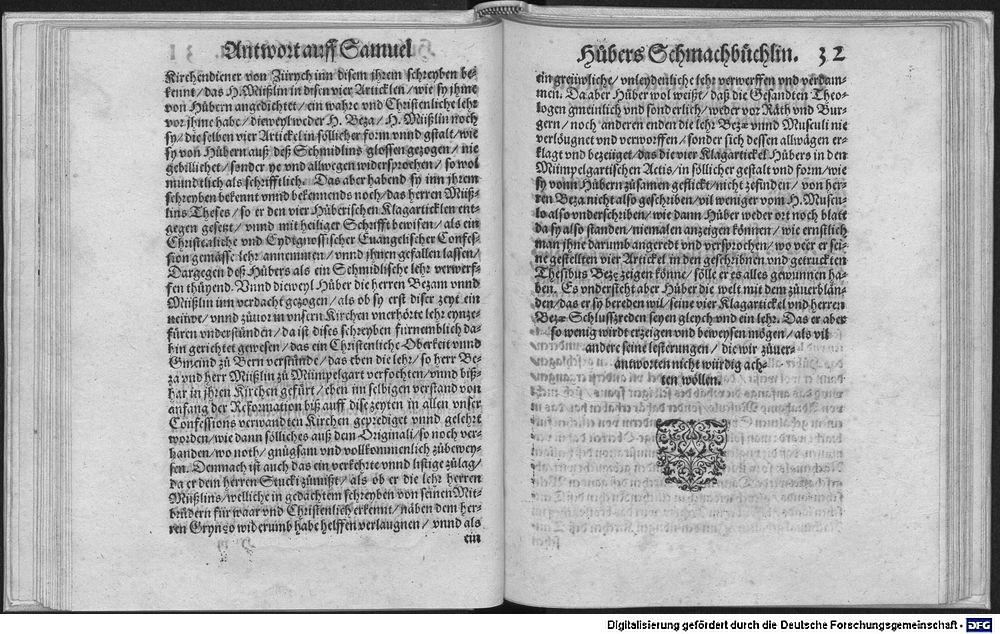 Antwort auff Samuel
Kirchendiener von Zürych inn disem jhrem schreyben be-
kennt/ das H. Müßlin in disen vier Articklen/ wie sy jhme
von Hübern angedichtet/ ein wahre vnd Christenliche lehr
vor jhme habe/ dieweyl weder H. Beza/ H. Müßlin noch
sy/ dieselben vier Artickel in söllicher form vnnd gstalt/ wie
sy von Hübern auß deß Schmidlins glossen gezogen/ nie
gebillichet/ sonder ye vnd allwegen widersprochen/ so wol
mundtlich als schrifftlich. Das aber habend sy inn jhrem
schreyben bekennt vnnd bekennends noch/ das herren Müß-
lins Theses/ so er den vier Hüberischen Klagarticklen ent-
gegen gesetzt/ vnnd mit heiliger Schrifft bewisen/ als ein
Christenliche vnd Eydtgnossischer Euangelischer Confes-
sion gemässe lehr annemmen/ vnnd jhnen gefallen lassen/
Dargegen deß Hübers als ein Schmidlische lehr verwerf-
fen thüyend. Vnnd dieweyl Hüber die herren Bezam vnnd
Müßlin im verdacht gezogen/ als ob sy erst diser zeyt ein
neüwe/ vnnd züuor in vnsern Kirchen vnerhörte lehr eynze-
füren vnderstünden/ da ist dises schreyben fürnemblich da-
hin gerichtet gewesen/ das ein Christenliche Oberkeit vnnd
Gmeind zü Bern verstünde/ das eben die lehr/ so herr Be-
za vnd herr Müßlin zü Mümpelgart verfochten/ vnnd biß-
har in jhren Kirchen gefürt/ eben im selbigen verstand von
anfang der Reformation biß auff dise zeyten in allen vnser
Confessions verwandten Kirchen geprediget vnnd gelehrt
worden/ wie dann sölliches auß dem Originali/ so noch ver-
handen/ wo noth/ gnügsam vnd vollkommenlich zübewey-
sen. Demnach ist auch das ein verkehrte vnnd listige zülag/
da er dem herren Stucki zümißt/ als ob er die lehr herren
Müßlins/ welliche in gedachtem schreyben von seinen Mit-
brüdern für waar vnd Christenlich erkennt/ näben dem her-
ren Gryneo widerumb habe helffen verlaugnen/ vnnd als
ein
Hübers Schmachbüchlin. 32
ein greüwliche/ vnleydenliche lehr verwerffen vnd verdam-
men. Da aber Hüber wol weißt/ daß die Gesandten Theo-
logen gmeinlich vnd sonderlich/ weder vor Räth vnd Bur-
gern/ noch anderen enden die lehr Bezæ vnnd Musculi nie
verlöugnet vnd verworffen/ sonder sich dessen allwägen er-
klagt vnd bezeüget/ das die vier Klagartickel Hübers in den
Mümpelgartischen Actis/ in söllicher gestalt vnd form/ wie
sy vonn Hübern züsamen geflickt/ nicht zefinden/ von her-
ren Beza nicht also geschriben/ vil weniger vom H. Muscu-
lo also vnderschriben/ wie dann Hüber weder ort noch blatt
da sy also standen/ niemalen anzeigen können/ wie ernstlich
man jhne darumb angeredt vnd versprochen/ wo veer er sei-
ne gestelten vier Artickel in den geschribnen vnd getruckten
Thesibus Bezæ zeigen könne/ sölle er es alles gewunnen ha-
ben. Es vndersteht aber Hüber die welt mit dem züuerblän-
den/ das er sy bereden wil/ seine vier Klagartickel vnd herren
Bezæ Schlußreden seyen gleych vnd ein lehr. Das er aber
so wenig wirdt erzeigen vnd beweysen mögen/ als vil
andere seine lesterungen/ die wir züuer-
antworten nicht würdig ach-
ten wöllen.
Digitalisierung gefördert durch die Deutsche Forschungsgemeinschaft - DFG